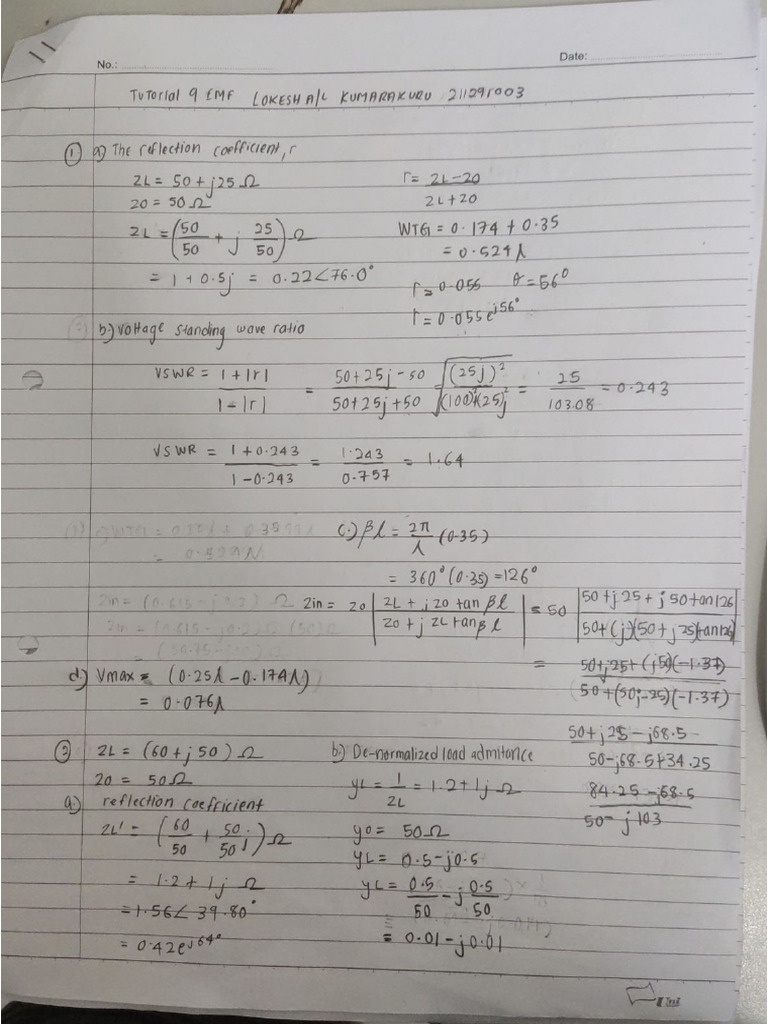 11
No.:
Date:
Tutorial 9 EMF LOKESH A/L KUMARAKURU 211291003
① a) The reflection coefficient, r
ZL = 50 + j25 Ω
Z0 = 50 Ω
ZL = (50/50 + j 25/50) Ω
= 1 + 0.5j = 0.22∠76.0°
r = ZL-Z0 / ZL+Z0
WTG = 0.174 + 0.35
= 0.524λ
r = 0.055 θ = 56°
r = 0.055e^j56°
b.) Voltage standing wave ratio
VSWR = 1+|r| / 1-|r| = 50+25j-50 / 50+25j+50 √(25j)² / √(100)²+(25)²j = 25 / 103.08 = 0.243
VSWR = 1+0.243 / 1-0.243 = 1.243 / 0.757 = 1.64
c.) βl = 2π/λ (0.35)
= 360° (0.35) = 126°
Zin = Z0 | ZL + jZ0 tan βl / Z0 + jZL tan βl | = 50 | 50+j25+j50tan126 / 50+(j)(50+j25)tan126 |
= 50+j25+(j50)(-1.37) / 50+(50j-25)(-1.37)
50+j25-j68.5 / 50-j68.5+34.25
84.25-j68.5
50-j103
d.) Vmax = (0.25λ - 0.174λ)
= 0.076λ
② ZL = (60+j50) Ω
Z0 = 50Ω
a.) reflection coefricient
ZL' = (60/50 + 50/50 j) Ω
= 1.2 + 1j Ω
= 1.56∠39.80°
= 0.42e^j64°
b.) De-normalized load admitance
yL = 1/ZL = 1.2+1j Ω
y0 = 50Ω
yL = 0.5-j0.5
yL = 0.5/50 - j 0.5/50
= 0.01-j0.01